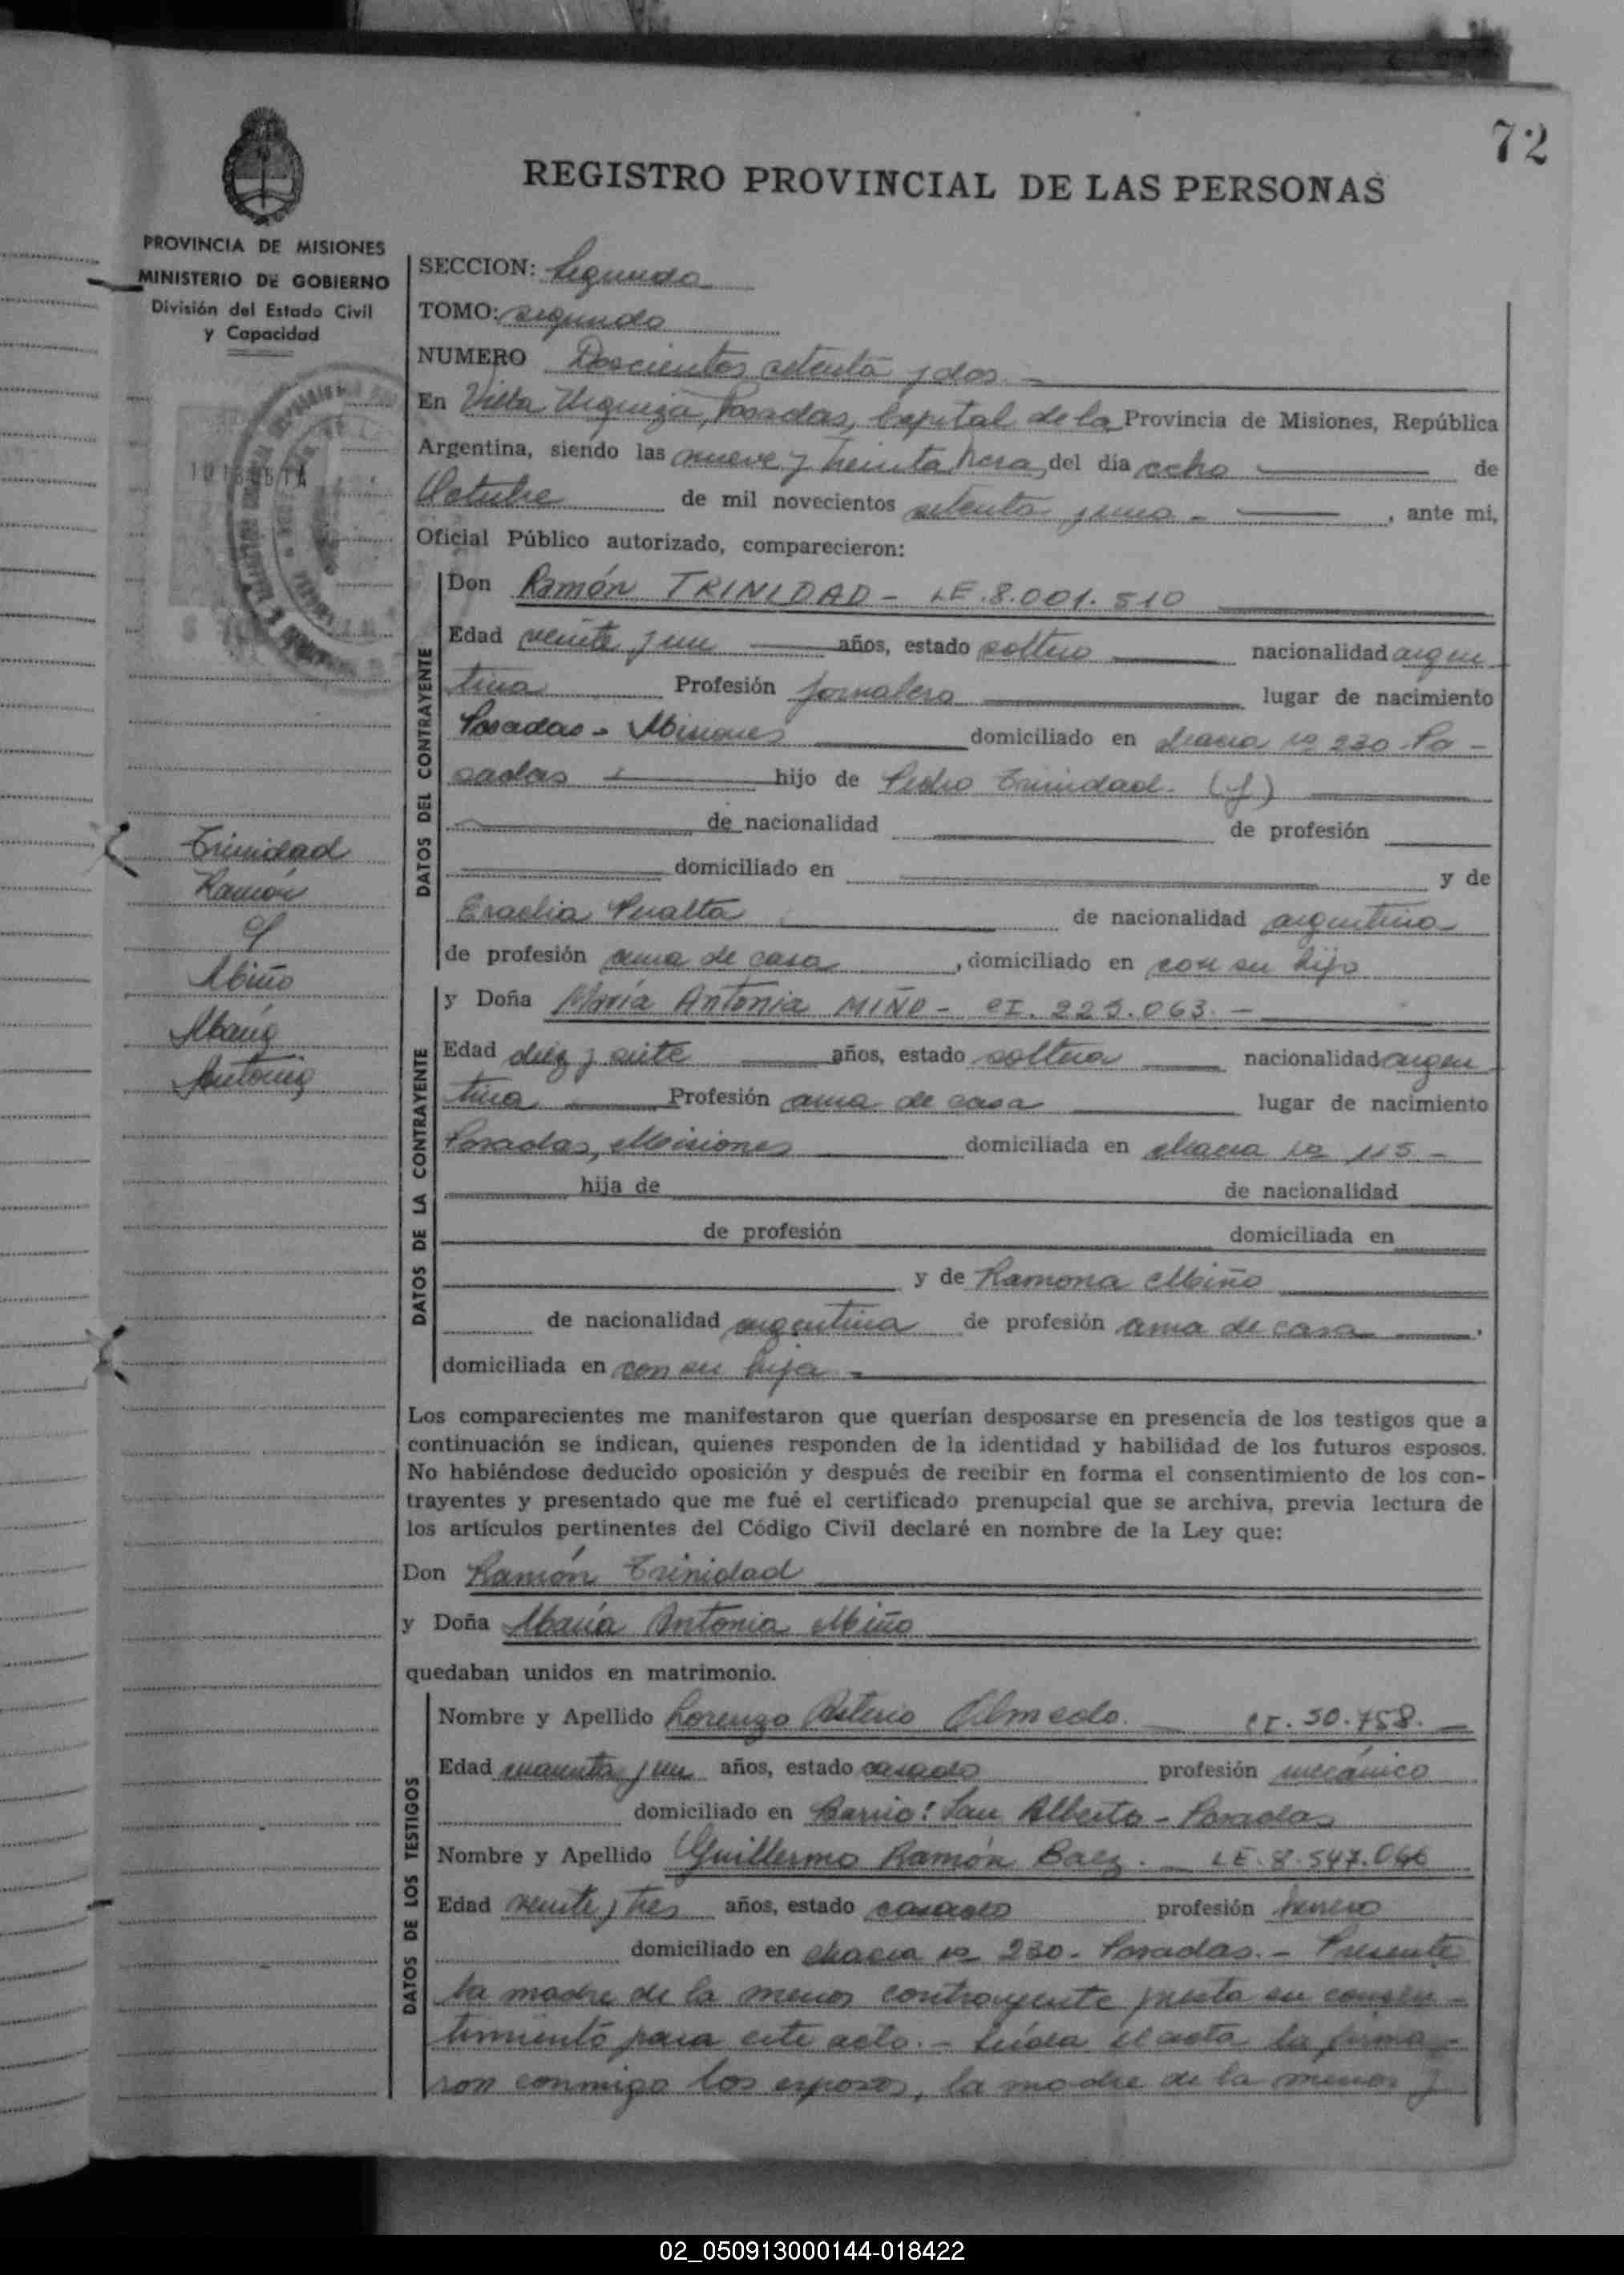 72
REGISTRO PROVINCIAL DE LAS PERSONAS
PROVINCIA DE MISIONES
MINISTERIO DE GOBIERNO
División del Estado Civil
y Capacidad
SECCION: Segunda
TOMO: segundo
NUMERO Doscientos setenta y dos. -
En Villa Urquiza, Posadas, Capital de la Provincia de Misiones, República
Argentina, siendo las nueve y treinta hora, del día ocho de
Octubre de mil novecientos setenta y uno - , ante mi,
Oficial Público autorizado, comparecieron:
DATOS DEL CONTRAYENTE
Don Ramón TRINIDAD - LE. 8.001.510
Edad veinte y un años, estado soltero nacionalidad argen
tina Profesión jornalero lugar de nacimiento
Posadas - Misiones domiciliado en chacra nº 230 - Po -
sadas hijo de Pedro Trinidad. (f)
de nacionalidad de profesión
domiciliado en y de
Eraclia Peralta de nacionalidad argentina
de profesión ama de casa , domiciliado en con su hijo
Trinidad
Ramón
y
Miño
María
Antonia
DATOS DE LA CONTRAYENTE
y Doña María Antonia MIÑO - CI. 223.063. -
Edad diez y siete años, estado soltera nacionalidad argen
tina Profesión ama de casa lugar de nacimiento
Posadas, Misiones domiciliada en chacra nº 115 -
hija de de nacionalidad
de profesión domiciliada en
y de Ramona Miño
de nacionalidad argentina de profesión ama de casa .
domiciliada en con su hija -
Los comparecientes me manifestaron que querían desposarse en presencia de los testigos que a
continuación se indican, quienes responden de la identidad y habilidad de los futuros esposos.
No habiéndose deducido oposición y después de recibir en forma el consentimiento de los con-
trayentes y presentado que me fué el certificado prenupcial que se archiva, previa lectura de
los artículos pertinentes del Código Civil declaré en nombre de la Ley que:
Don Ramón Trinidad
y Doña María Antonia Miño
quedaban unidos en matrimonio.
DATOS DE LOS TESTIGOS
Nombre y Apellido Lorenzo Asterio Olmedo. CI. 50.758. -
Edad cuarenta y un años, estado casado profesión mecánico
domiciliado en Barrio: San Alberto - Posadas
Nombre y Apellido Guillermo Ramón Baez. - LE. 8.547.066
Edad veinte y tres años, estado casado profesión herrero
domiciliado en chacra nº 230 - Posadas. - Presente
la madre de la menor contrayente presta su consen -
timiento para este acto. - Leída el acta la firma -
ron conmigo los esposos, la madre de la menor y
02_050913000144-018422